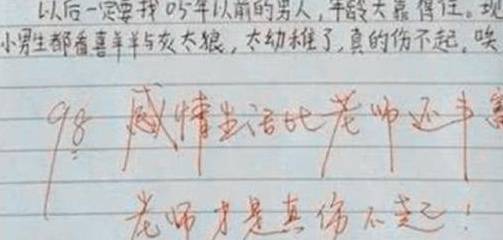 以后一定要找05年以前的男人,年龄大靠得住。现
小男生都看喜羊羊与灰太狼,太幼稚了,真的伤不起,唉
98 感情生活比老师还丰富
老师才是真伤不起!